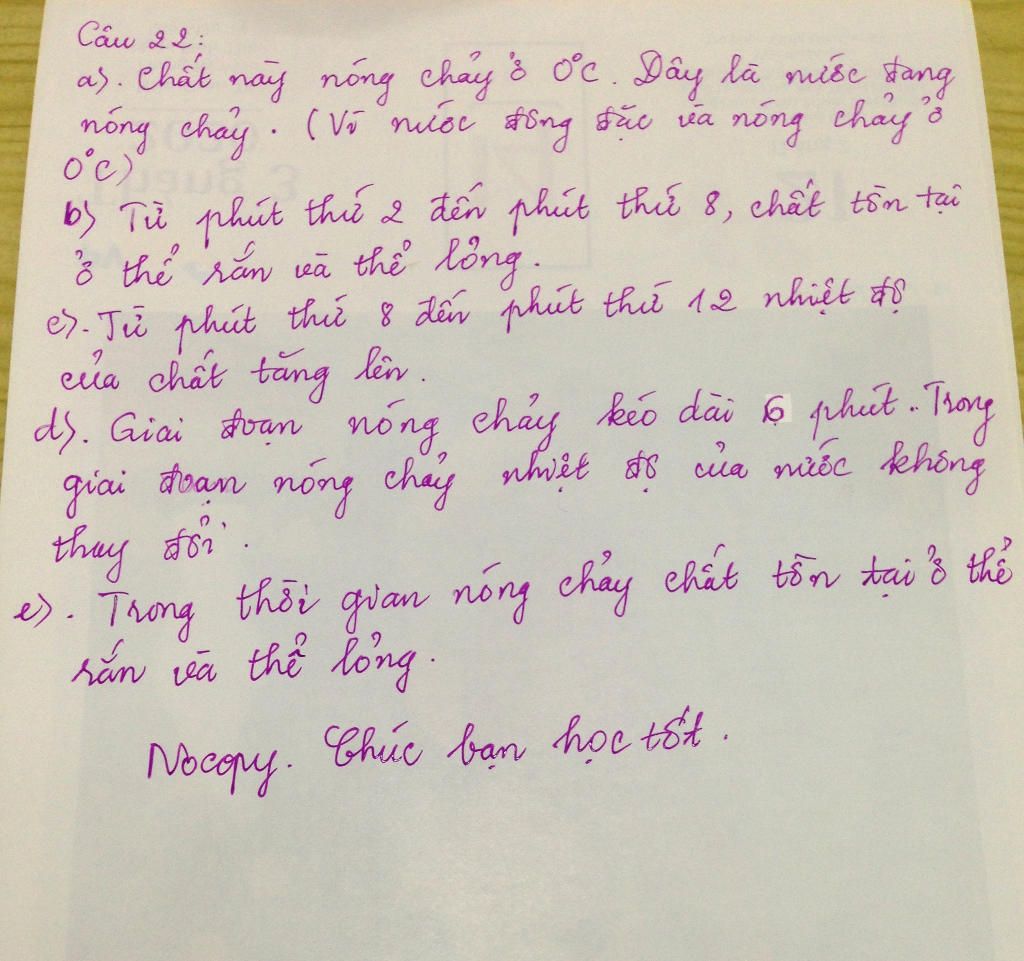 Câu 22:
a). Chất này nóng chảy ở 0°C. Đây là nước đang
nóng chảy. (Vì nước đông đặc và nóng chảy ở
0°C)
b) Từ phút thứ 2 đến phút thứ 8, chất tồn tại
ở thể rắn và thể lỏng.
c). Từ phút thứ 8 đến phút thứ 12 nhiệt độ
của chất tăng lên.
d). Giai đoạn nóng chảy kéo dài 6 phút. Trong
giai đoạn nóng chảy nhiệt độ của nước không
thay đổi.
e). Trong thời gian nóng chảy chất tồn tại ở thể
rắn và thể lỏng.
Nocopy. Chúc bạn học tốt.